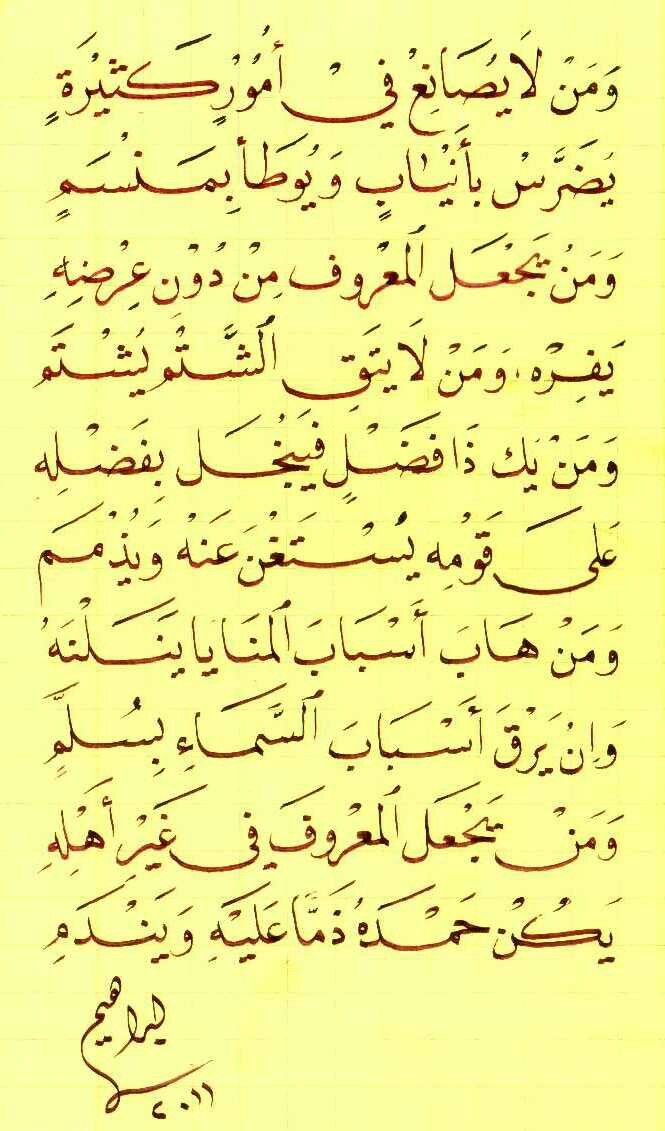 وَمَنْ لَا يُصَانِعْ فِيْ أُمُوْرٍ كَثِيْرَةٍ
يُضَرَّسْ بِأَنْيَابٍ وَيُوطَأْ بِمَنْسَمِ
وَمَنْ يَجْعَلِ ٱلْمَعْرُوفَ مِنْ دُوْنِ عِرْضِهِ
يَفِرْهُ، وَمَنْ لَا يَتَّقِ ٱلشَّتْمَ يُشْتَمِ
وَمَنْ يَكُ ذَا فَضْلٍ فَيَبْخَلْ بِفَضْلِهِ
عَلَى قَوْمِهِ يُسْتَغْنَ عَنْهُ وَيُذْمَمِ
وَمَنْ هَابَ أَسْبَابَ ٱلْمَنَايَا يَنَلْنَهُ
وَإِنْ يَرْقَ أَسْبَابَ ٱلسَّمَاءِ بِسُلَّمِ
وَمَنْ يَجْعَلِ ٱلْمَعْرُوفَ فِي غَيْرِ أَهْلِهِ
يَكُنْ حَمْدُهُ ذَمًّا عَلَيْهِ وَيَنْدَمِ
ابراهيم
٢٠١١